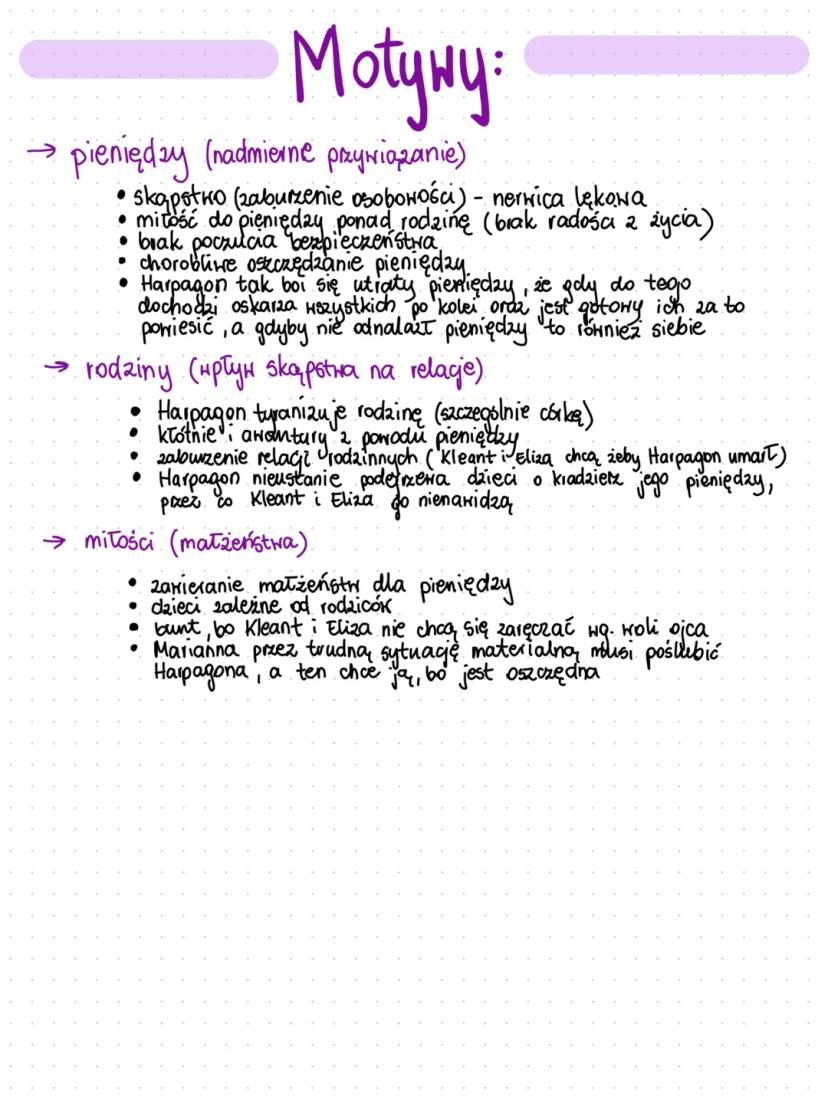 Motywy:
→ pieniędzy (nadmierne przywiązanie)
• skąpstwo (zaburzenie osobowości) - nerwica lękowa
• miłość do pieniędzy ponad rodzinę (brak radości z życia)
• brak poczucia bezpieczeństwa
• chorobliwe oszczędzanie pieniędzy
• Harpagon tak boi się utraty pieniędzy, że gdy do tego
dochodzi oskarża wszystkich po kolei oraz jest gotowy ich za to
powiesić, a gdyby nie odnalazł pieniędzy to również siebie
→ rodziny (wpływ skąpstwa na relacje)
• Harpagon tyranizuje rodzinę (szczególnie córkę)
• kłótnie i awantury z powodu pieniędzy
• zaburzenie relacji rodzinnych (Kleant i Eliza chcą żeby Harpagon umarł)
• Harpagon nieustanie podejrzewa dzieci o kradzież jego pieniędzy,
przez co Kleant i Eliza go nienawidzą
→ miłości (małżeństwa)
• zawieranie małżeństw dla pieniędzy
• dzieci zależne od rodziców
• bunt, bo Kleant i Eliza nie chcą się zaręczać wg. woli ojca
• Marianna przez trudną sytuację materialną musi poślubić
Harpagona, a ten chce ją, bo jest oszczędna